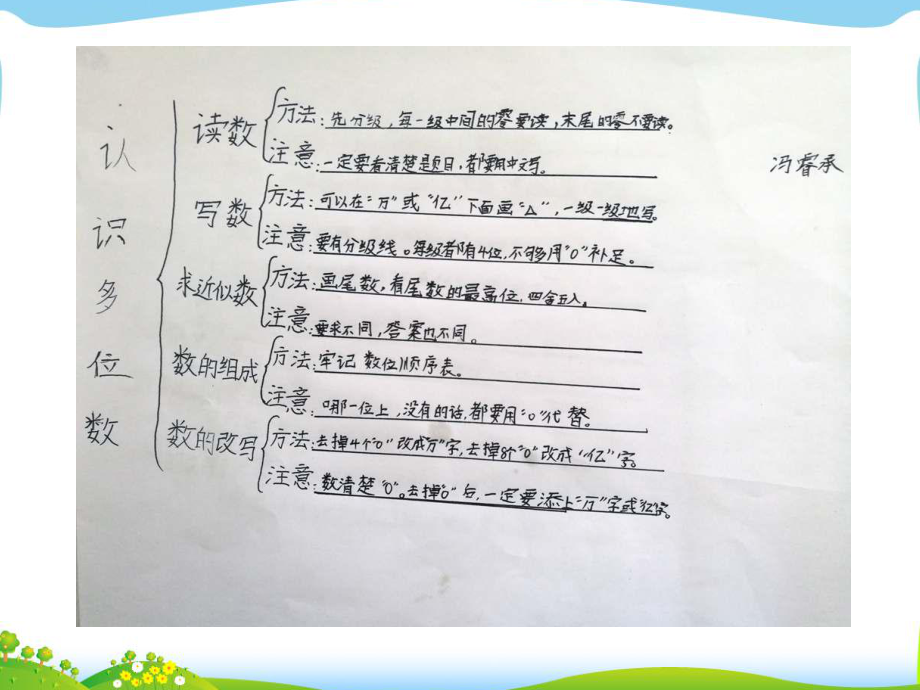 认识多位数
读数
方法:先分级,每一级中间的零要读,末尾的零不要读。
注意:一定要看清楚是题目,都要用中文写。
冯睿承
写数
方法:可以在“万”或“亿”下面画“△”,一级一级地写。
注意:要有分级线。每级都有4位,不够用“0”补足。
求近似数
方法:画尾数,看尾数的最高位,四舍五入。
注意:要求不同,答案也不同。
数的组成
方法:牢记数位顺序表。
注意:哪一位上,没有的话,都要用“0”代替。
数的改写
方法:去掉4个“0”改成“万”字,去掉8个“0”改成“亿”字。
注意:数清楚“0”。去掉“0”后,一定要添上“万”字或“亿”字。